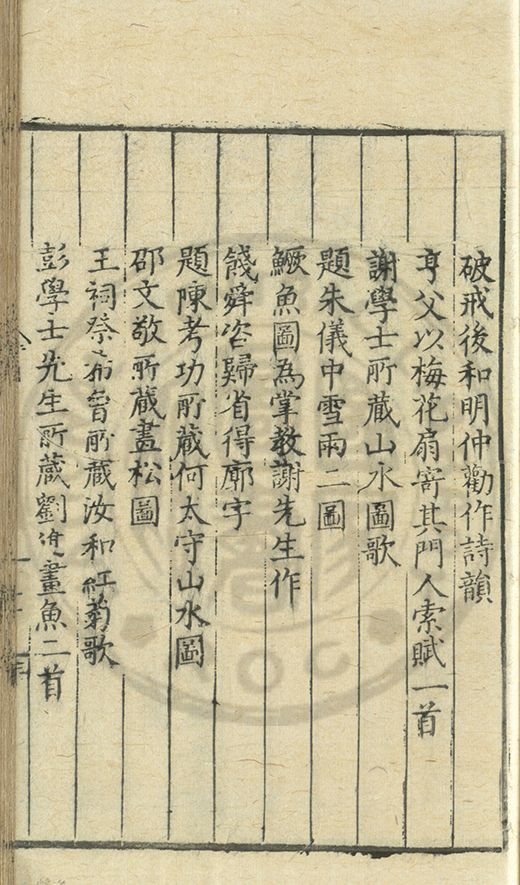 破戒後和明仲勸作詩韻
亨父以梅花扇寄其門人索賦一首
謝學士所藏山水圖歌
題朱儀中雪雨二圖
鱖魚圖為掌教謝先生作
餞舜咨歸省得廓字
題陳考功所藏何太守山水圖
邵文敬所藏畫松圖
王祠祭希曾所藏汝和紅菊歌
彭學士先生所藏劉進畫魚二首